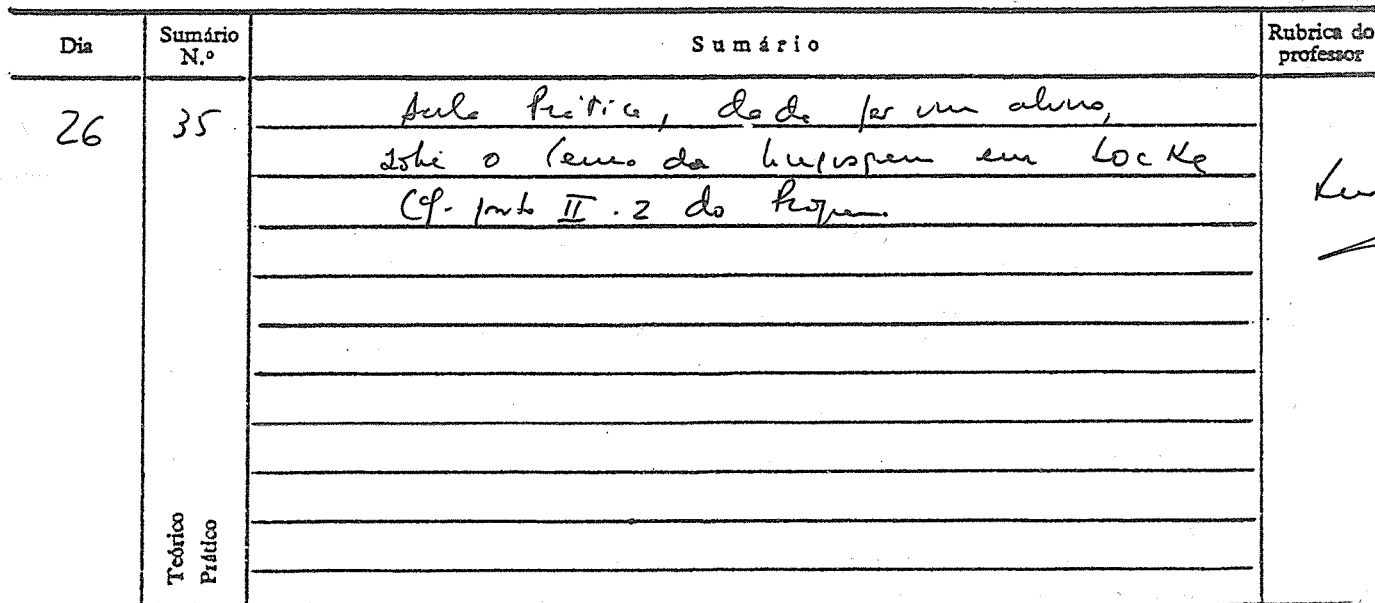 Dia
Sumário N.º
Sumário
Rubrica do professor
26
35
Aula Prática, dada por um aluno,
sobre o tema da linguagem em Locke
Cf. ponto II.2 do Program
Teórico
Prático